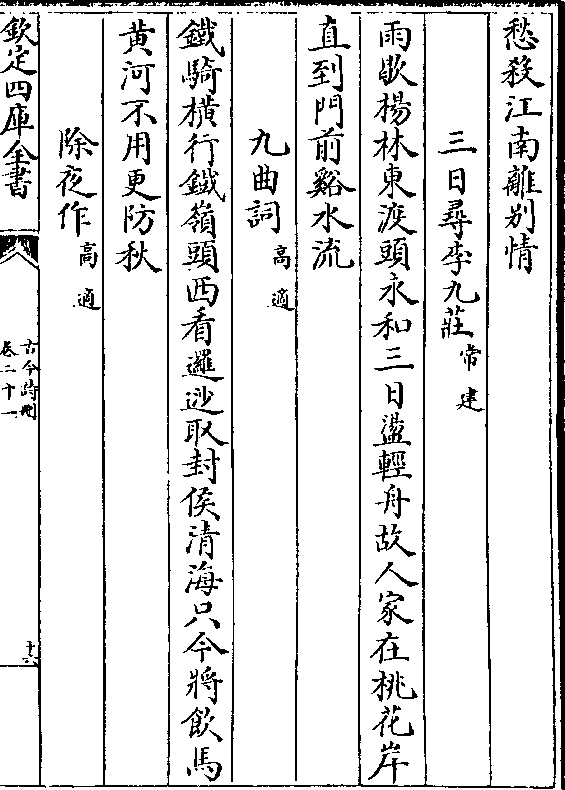 愁殺江南離别情
三日尋李九莊常建
雨歇楊林東渡頭永和三日盪輕舟故人家在桃花岸
直到門前谿水流
九曲詞高適
鐵騎橫行鐵嶺頭西看邏逤取封侯清海只今將飲馬
黄河不用更防秋
除夜作高適
欽定四庫全書
古今詩刪
卷二十一
十六